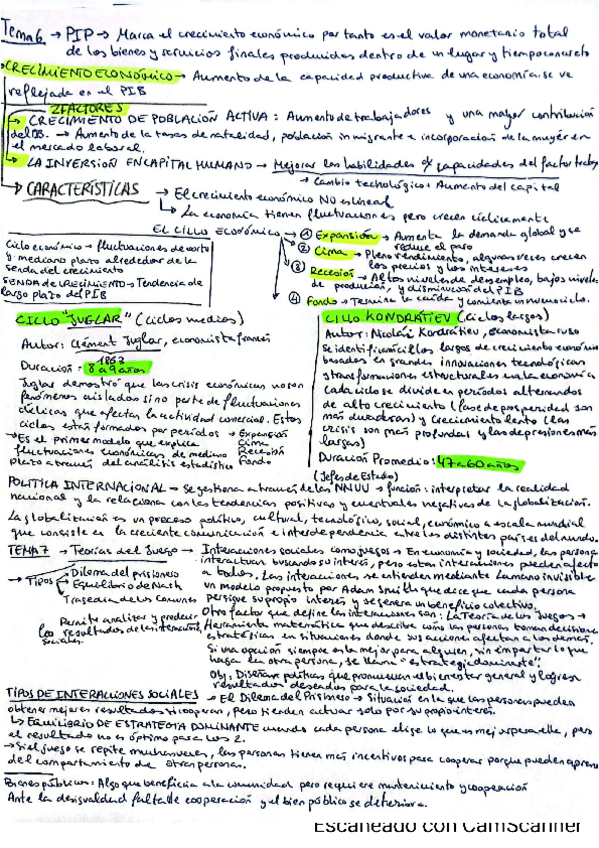 Tema 6 → PIP → Marca el crecimiento económico por tanto es el valor monetario total
de los bienes y servicios finales producidos dentro de un lugar y tiempo concreto
CRECIMIENTO ECONÓMICO → Aumento de la capacidad productiva de una economía. se ve
reflejada en el PIB
2 FACTORES
→ CRECIMIENTO DE POBLACIÓN ACTIVA: Aumento de trabajadores y una mayor contribución
→ Aumento de la tasas de natalidad, población inmigrante e incorporación de la mujer en
el mercado laboral.
→ LA INVERSION EN CAPITAL HUMANO → Mejorar las habilidades y capacidades del factor trabajo
→ Cambio tecnológico + Aumento del capital
→ CARACTERÍSTICAS → El crecimiento económico NO es lineal
↳ La economía tienen fluctuaciones pero crecen cíclicamente
EL CICLO ECONÓMICO → ① Expansión → Aumenta la demanda global y se
reduce el paro
② Cima → Pleno rendimiento, algunas veces crecen
los precios y los intereses
③ Recesión → Altos niveles de desempleo, bajos niveles
de producción, y disminución del PIB
④ Fondo → Termina la caída y comienta un nuevo ciclo.
Ciclo económico → fluctuaciones de corto
y mediano plazo alrededor de la
senda del crecimiento
SENDA DE CRECIMIENTO → Tendencia de
largo plazo del PIB
CICLO "JUGLAR" (Ciclos medios)
Autor: Clément Juglar, economista francés
1862
Duración: 8 a 9 años
Juglar demostró que las crisis económicas no son
fenómenos aislados sino parte de fluctuaciones
cíclicas que afectan la actividad comercial. Estos
ciclos están formados por periodos → Expansión
Cima
Recesión
Fondo
→ Es el primer modelo que explica
fluctuaciones económicas de mediano
plazo a través del análisis estadístico
CICLO KONDRÁTIEV (Ciclos largos)
Autor: Nicolái Kondrátiev, economista ruso
Se identifica ciclos largos de crecimiento económico
basados en grandes innovaciones tecnológicas
y transformaciones estructurales en la economía
cada ciclo se divide en períodos alternandos
de alto crecimiento (fase de prosperidad son
más duraderas) y crecimiento lento (las
crisis son más profundas y las depresiones más
largas)
Duración Promedio: 47 a 60 años
(Jefes de Estado)
POLITICA INTERNACIONAL → Se gestiona a través de las NNUU → función: interpretar la realidad
nacional y la relaciona con las tendencias positivas y eventuales negativas de la globalización.
La globalización es un proceso político, cultural, tecnológico, social, económico a escala mundial
que consiste en la creciente comunicación e interdependencia entre los distintos países del mundo.
TEMA 7 → Teorías del Juego → Interacciones sociales como juegos → En economía y sociedad, las personas
interactúan buscando su interés, pero estas interacciones pueden afectar
a todos. Las interacciones se entienden mediante La mano invisible
un modelo propuesto por Adam Smith que dice que cada persona
persigue su propio interés y se genera un beneficio colectivo.
Otro factor que define las interacciones son: La Teoría de los Juegos →
Herramienta matemática que describe como las personas toman decisiones
estratéticas en situaciones donde sus acciones afectan a los demás.
Si una opción siempre es la mejor para alguien, sin importar lo que
haga la otra persona, se llama "estrategia dominante".
Obj: Diseñar políticas que promuevan el bienestar general y logren
resultados deseados para la sociedad.
→ TIPOS
Dilema del prisionero
Equilibrio de Nash
Tragedia de los Comunes
Permite analizar y predecir
los resultados de las interacciones
sociales.
TIPOS DE INTERACCIONES SOCIALES → El Dilema del Prisionero → Situación en la que las personas pueden
obtener mejores resultados si cooperan, pero tienden actuar solo por su propio interés.
↳ EQUILIBRIO DE ESTRATEGIA DOMINANTE cuando cada persona elige lo que es mejor para ella, pero
el resultado no es óptimo para los 2.
→ Si el juego se repite muchas veces, las personas tienen más incentivos para cooperar porque pueden aprender
del comportamiento de otras personas.
Bienes públicos: Algo que beneficia a la comunidad pero requiere mantenimiento y cooperación
Ante la desigualdad falta de cooperación y el bien público se deteriora.
Escaneado con CamScanner